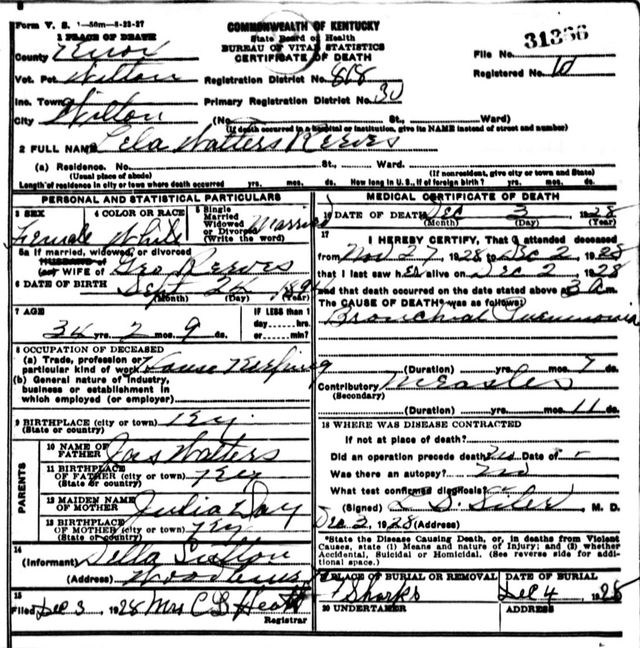 Form V. S. 1—50m—8-23-27
COMMONWEALTH OF KENTUCKY
State Board of Health
BUREAU OF VITAL STATISTICS
CERTIFICATE OF DEATH
31366
File No.
Registered No. 10
1 PLACE OF DEATH
County Knox
Vot. Pct. Wilton
Registration District No. 818
Inc. Town
Primary Registration District No. 30
City Wilton (No. St., Ward)
(If death occurred in a hospital or institution, give its NAME instead of street and number)
2 FULL NAME Lela Walters Reeves
(a) Residence. No. St., Ward.
(Usual place of abode) (If nonresident, give city or town and State)
Length of residence in city or town where death occurred yrs. mos. ds. How long in U. S., if of foreign birth? yrs. mos. ds.
PERSONAL AND STATISTICAL PARTICULARS
3 SEX 4 COLOR OR RACE 5 Single Married Widowed or Divorced (Write the word) Married
Female White
5a If married, widowed, or divorced
HUSBAND of
(or) WIFE of Geo Reeves
6 DATE OF BIRTH Sept 24 1894
(Month) (Day) (Year)
7 AGE IF LESS than 1 day hrs. or min.?
34 yrs. 2 mos. 9 ds.
8 OCCUPATION OF DECEASED
(a) Trade, profession or particular kind of work House Keeping
(b) General nature of industry, business or establishment in which employed (or employer)
9 BIRTHPLACE (city or town) Ky
(State or country)
PARENTS
10 NAME OF FATHER Jas Walters
11 BIRTHPLACE OF FATHER (city or town) Ky
(State or country)
12 MAIDEN NAME OF MOTHER Julia Day
13 BIRTHPLACE OF MOTHER (city or town) Ky
(State or country)
14
(Informant) Della Sutton
(Address)
15
Filed Dec 3 1928 Mrs C B Heath
Registrar
MEDICAL CERTIFICATE OF DEATH
16 DATE OF DEATH Dec 3 1928
(Month) (Day) (Year)
17
I HEREBY CERTIFY, That I attended deceased
from Nov 27 1928 to Dec 2 1928
that I last saw her alive on Dec 2 1928
and that death occurred on the date stated above 3 am.
The CAUSE OF DEATH* was as follows:
Bronchial Pneumonia
(Duration) yrs. mos. 7 ds.
Contributory Measles
(Secondary)
(Duration) yrs. mos. 11 ds.
18 WHERE WAS DISEASE CONTRACTED
If not at place of death?
Did an operation precede death? No Date of
Was there an autopsy? No
What test confirmed diagnosis?
(Signed) L. S. Siler M. D.
Dec 2, 1928 (Address)
*State the Disease Causing Death, or, in deaths from Violent Causes, state (1) Means and nature of Injury; and (2) whether Accidental, Suicidal or Homicidal. (See reverse side for additional space.)
19 PLACE OF BURIAL OR REMOVAL DATE OF BURIAL
Sharps Dec 4 1928
20 UNDERTAKER ADDRESS